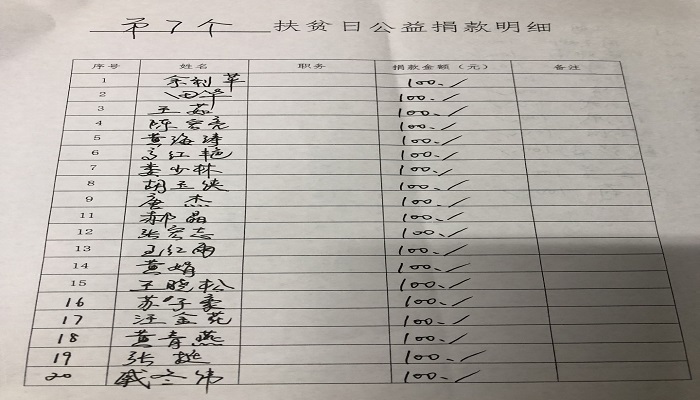 第7个 扶贫日公益捐款明细
序号 姓名 职务 捐款金额（元） 备注
1 余利苹 100.-/
2 田华 100.-/
3 王茹 100.-/
4 陈宏亮 100.-/
5 黄海涛 100.-/
6 高红艳 100.-/
7 娄少林 100.-/
8 胡玉侠 100.-/
9 唐杰 100.-/
11 郝晶 100.-/
12 张宏志 100.-/
13 王红雨 100.-/
14 黄娟 100.-/
15 王晓松 100.-/
16 苏子豪 100.-/
17 汪金苑 100.-/
18 黄青燕 100.-/
19 张挺 100.-/
20 100.-/